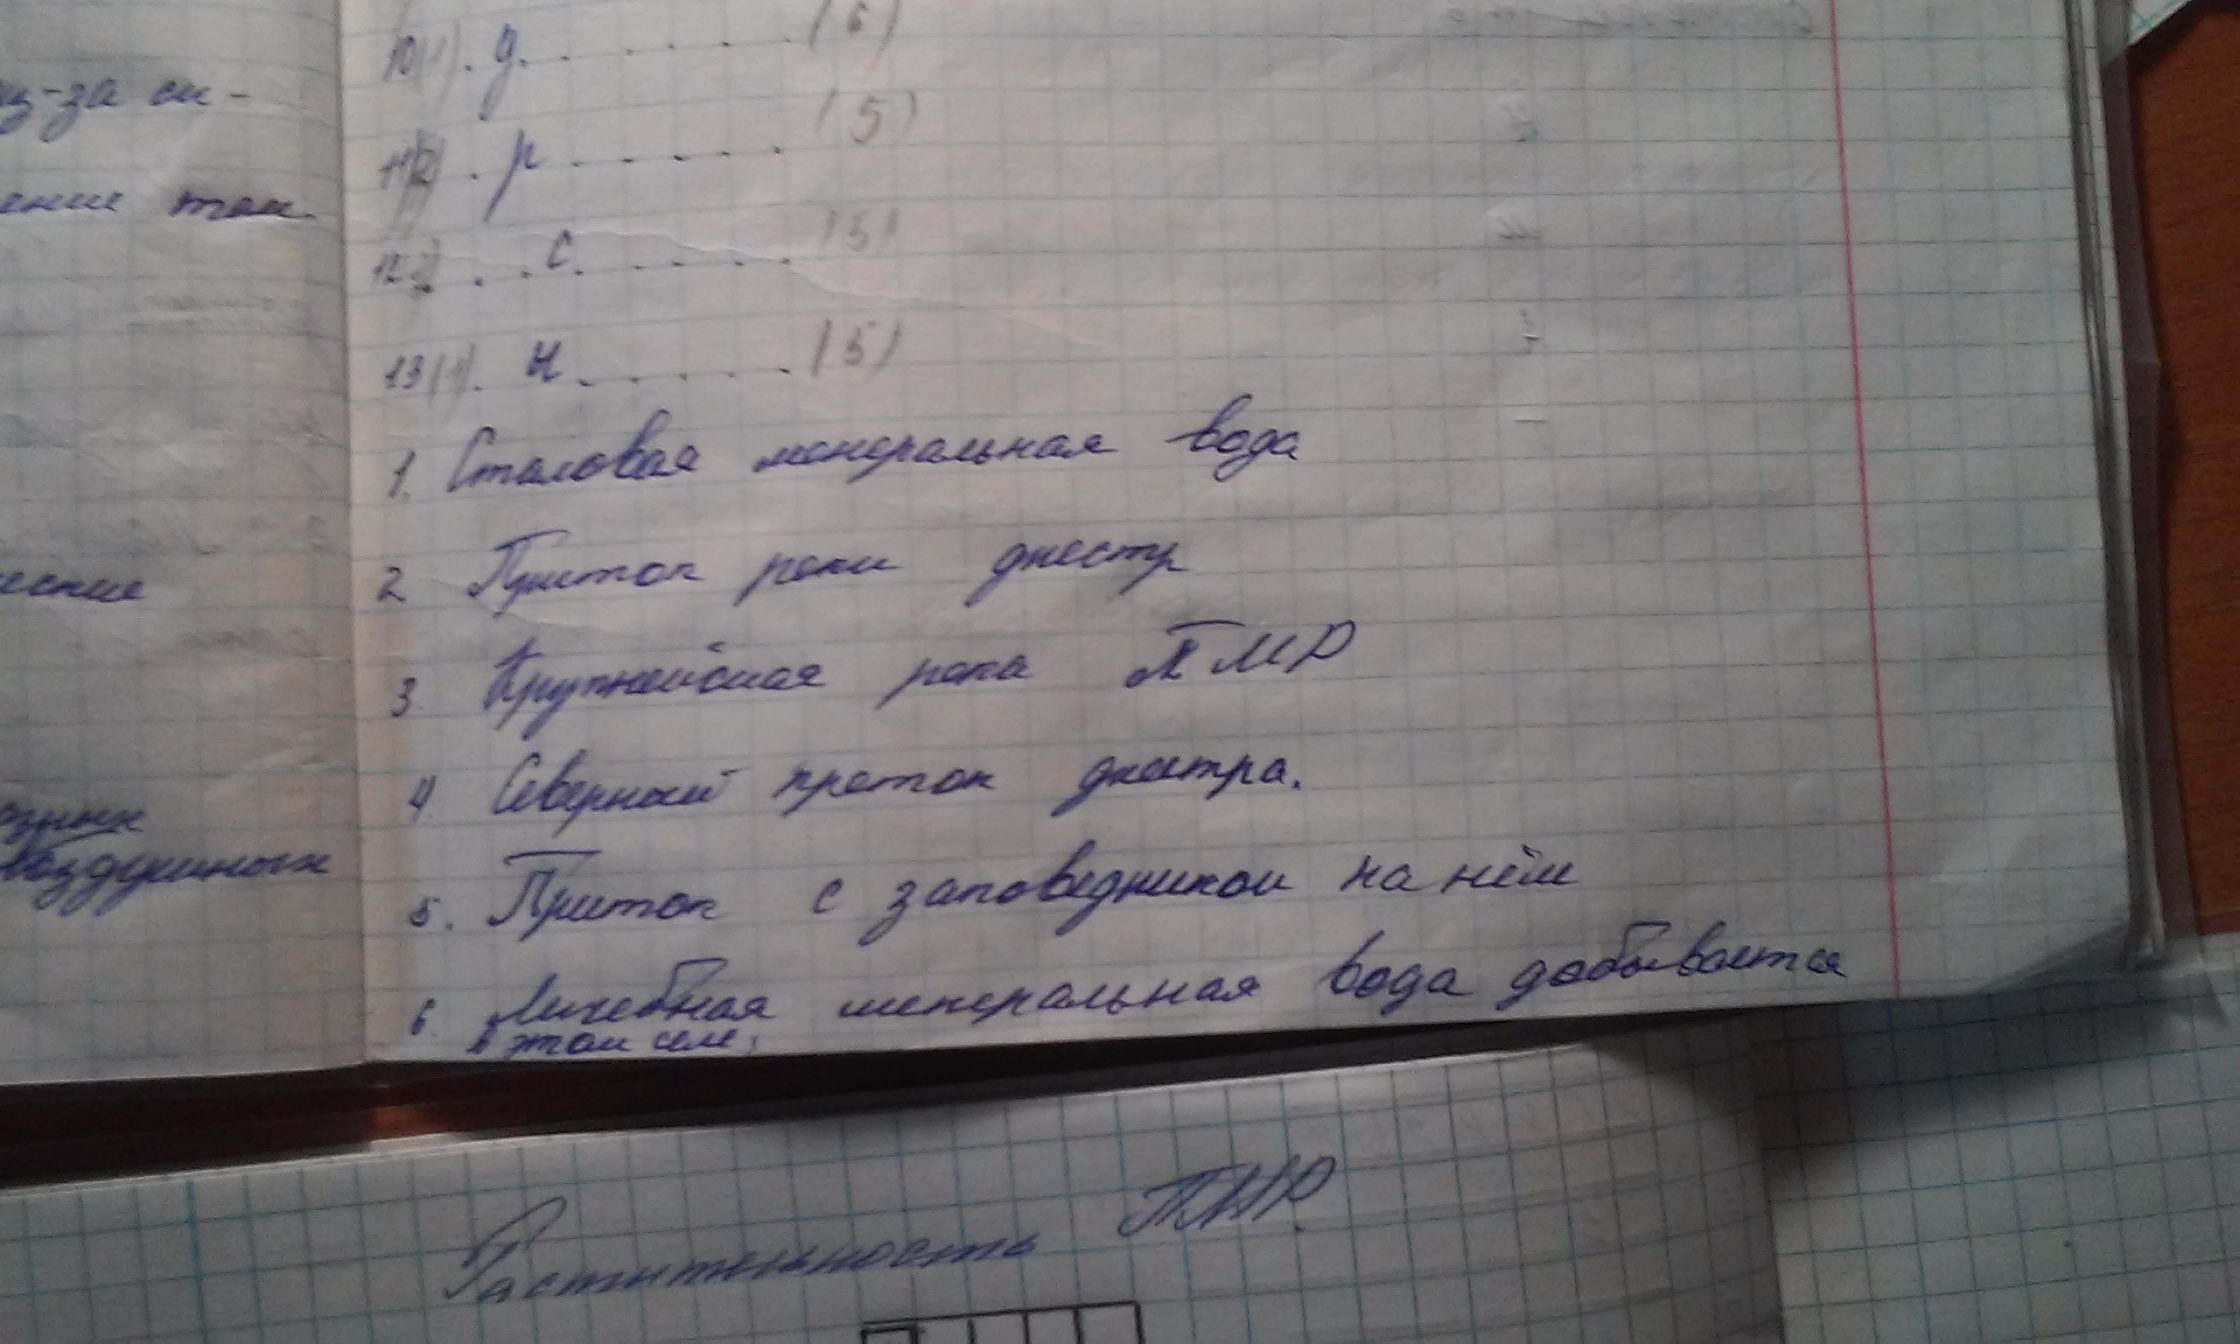 из-за си-
10(1). д. . . . . . . (6)
11(2) . р . . . . . . (5)
ение теп
12 . . с . . . . . . (5)
13(1). н . . . . . . (5)
1. Столовая менеральная вода
2 Приток реки днестр
3 Крупнейшая река ПМР
4 Северный преток днестра.
5. Приток с заповедником на нём
воздушных
6. Личебная менеральная вода добывается
в этом селе.
Растительность ПМР